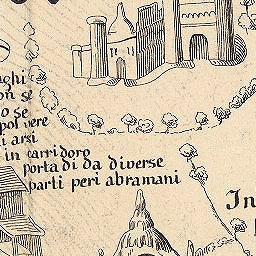 aghi
on se
o se
pol vere
i arsi
in carridoro
porta di da diverse
parti peri abramani
In